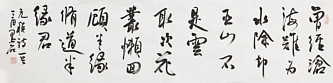 曾經滄
海難為
水除却
巫山不
是雲
取次花
叢懶回
顧半緣
脩道半
緣君
元稹詩一首